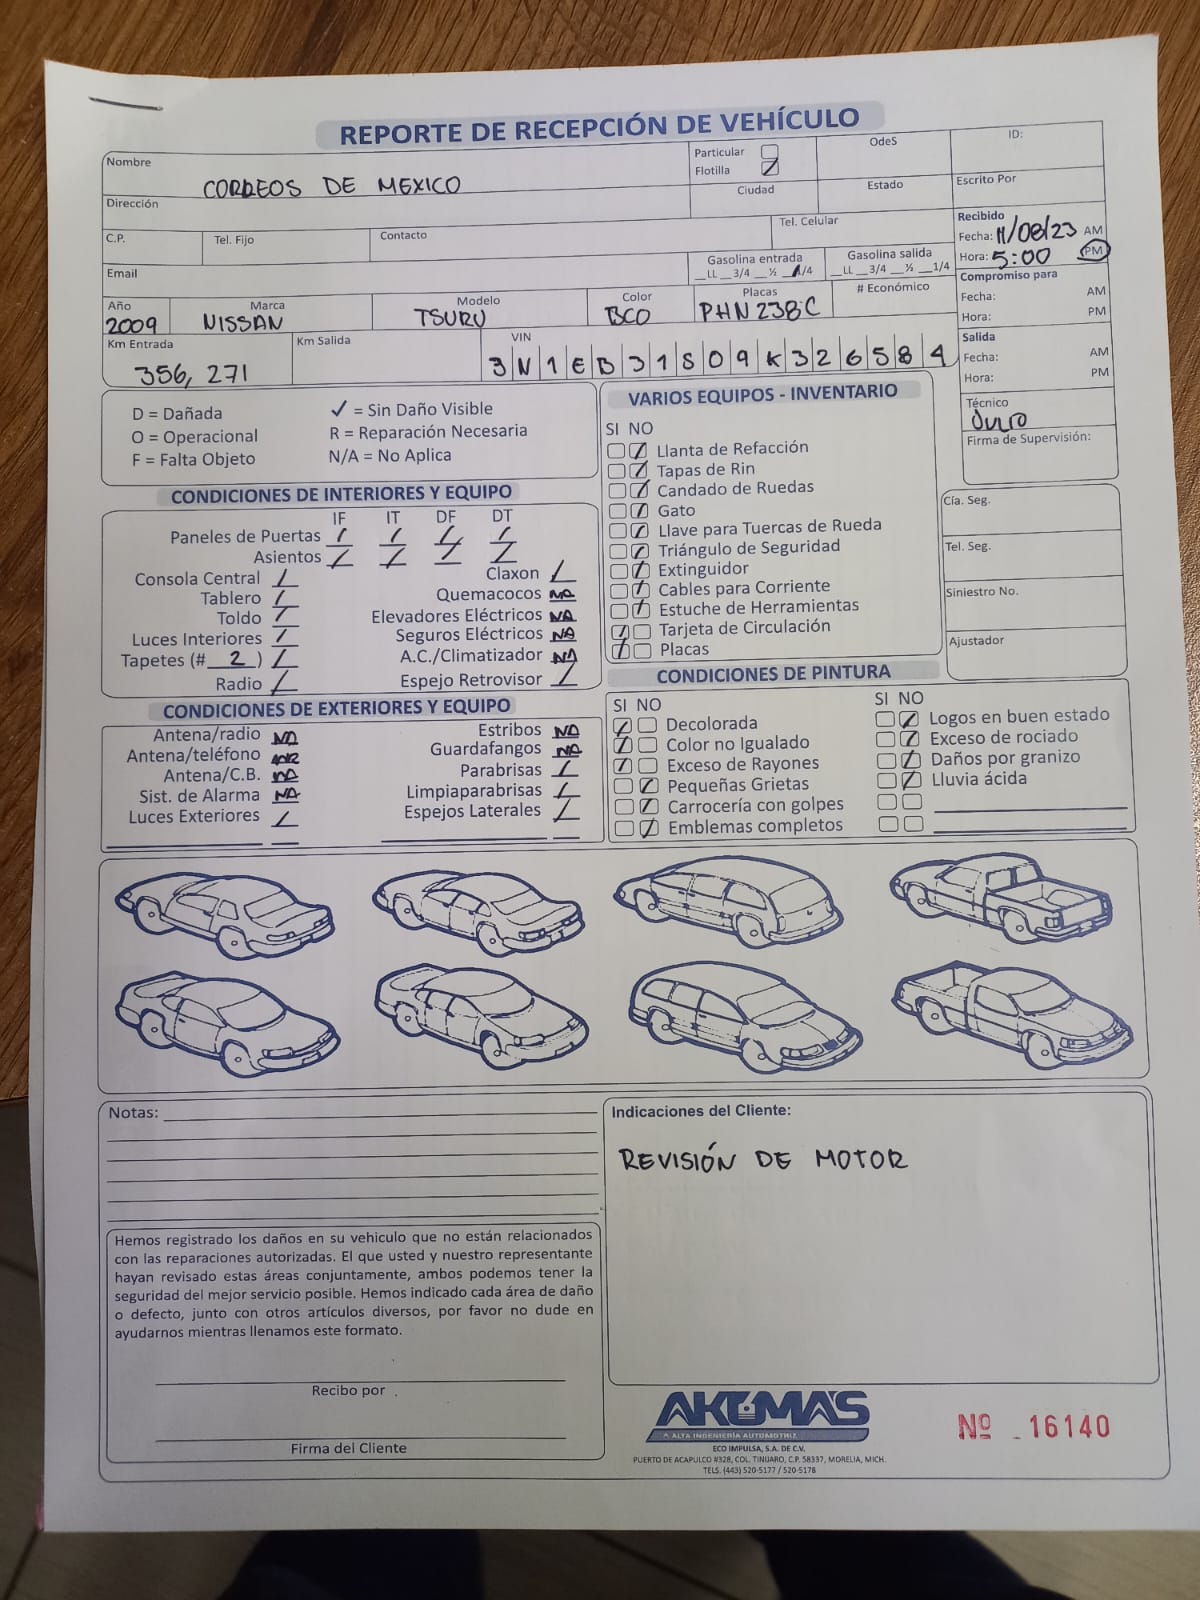 REPORTE DE RECEPCIÓN DE VEHÍCULO
Nombre
CORREOS DE MEXICO
Particular
Flotilla
OdeS
ID:
Dirección
Ciudad
Estado
Escrito Por
C.P.
Tel. Fijo
Contacto
Tel. Celular
Recibido
Fecha: 11/08/23 AM
Hora: 5:00 PM
Email
Gasolina entrada
__LL __3/4 __½ __1/4
Gasolina salida
__LL __3/4 __½ __1/4
Compromiso para
Fecha: AM
Hora: PM
Año
2009
Marca
NISSAN
Modelo
TSURU
Color
BCO
Placas
PHN238C
# Económico
Km Entrada
356,271
Km Salida
VIN
3N1EB31S09K326584
Salida
Fecha: AM
Hora: PM
Técnico
Firma de Supervisión:
D = Dañada
O = Operacional
F = Falta Objeto
✓ = Sin Daño Visible
R = Reparación Necesaria
N/A = No Aplica
CONDICIONES DE INTERIORES Y EQUIPO
IF IT DF DT
Paneles de Puertas
Asientos
Consola Central
Tablero
Toldo
Luces Interiores
Tapetes (# 2 )
Radio
Claxon
Quemacocos NA
Elevadores Eléctricos NA
Seguros Eléctricos NA
A.C./Climatizador NA
Espejo Retrovisor
CONDICIONES DE EXTERIORES Y EQUIPO
Antena/radio NA
Antena/teléfono
Antena/C.B. NA
Sist. de Alarma NA
Luces Exteriores
Estribos NA
Guardafangos NA
Parabrisas
Limpiaparabrisas
Espejos Laterales
VARIOS EQUIPOS - INVENTARIO
SI NO
Llanta de Refacción
Tapas de Rin
Candado de Ruedas
Gato
Llave para Tuercas de Rueda
Triángulo de Seguridad
Extinguidor
Cables para Corriente
Estuche de Herramientas
Tarjeta de Circulación
Placas
Cía. Seg.
Tel. Seg.
Siniestro No.
Ajustador
CONDICIONES DE PINTURA
SI NO
Decolorada
Color no Igualado
Exceso de Rayones
Pequeñas Grietas
Carrocería con golpes
Emblemas completos
SI NO
Logos en buen estado
Exceso de rociado
Daños por granizo
Lluvia ácida
Notas:
Indicaciones del Cliente:
REVISIÓN DE MOTOR
Hemos registrado los daños en su vehiculo que no están relacionados
con las reparaciones autorizadas. El que usted y nuestro representante
hayan revisado estas áreas conjuntamente, ambos podemos tener la
seguridad del mejor servicio posible. Hemos indicado cada área de daño
o defecto, junto con otros artículos diversos, por favor no dude en
ayudarnos mientras llenamos este formato.
Recibo por
Firma del Cliente
AKUMAS
ALTA INGENIERÍA AUTOMOTRIZ
ECO IMPULSA, S.A. DE C.V.
PUERTO DE ACAPULCO #328, COL. TINIJARO, C.P. 58337, MORELIA, MICH.
TELS. (443) 520-5177 / 520-5178
Nº 16140